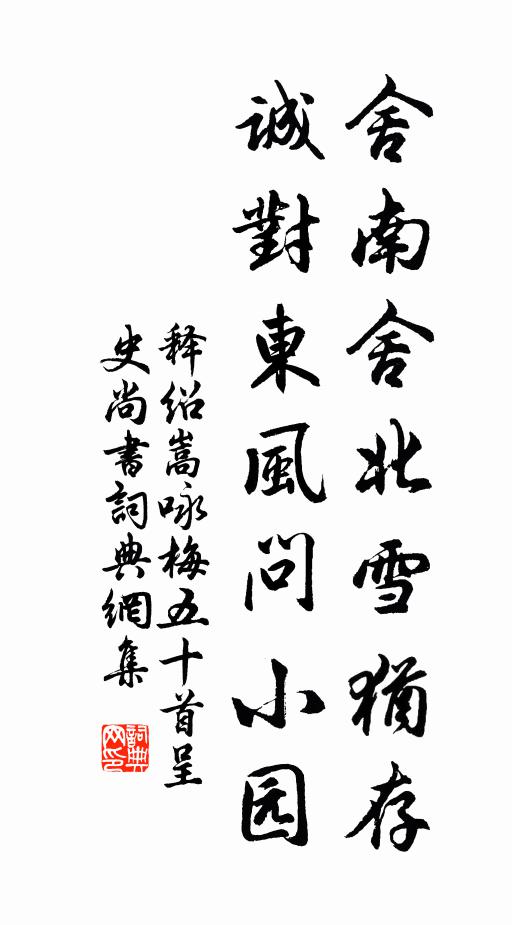 舍南舍北雪猶存
誠對東風問小园
释绍嵩咏梅五十首呈
史尚書詞典網集
詞典
网印